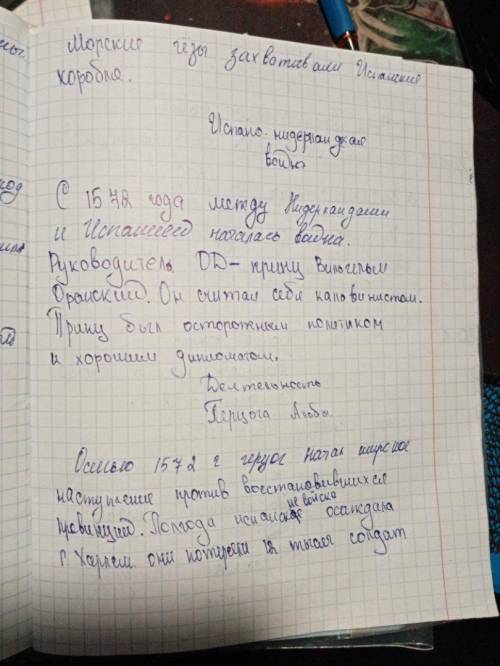 Морские гёзы захвативали Испанские
коробля.
Испано-нидерландская
война
С 1572 года между Нидерландами
и Испанией началась война.
Руководитель ОД - принц Вильгельм
Оранский. Он считал себя кальвинистом.
Принц был осторожным политиком
и хорошим дипломатом.
Деятельность
Герцога Альбы
Осенью 1572 г герцог начал широкое
наступление против восстановившихся
провинций. Полгода испанские войска осаждала
г. Харлем они потеряли 12 тысяч солдат